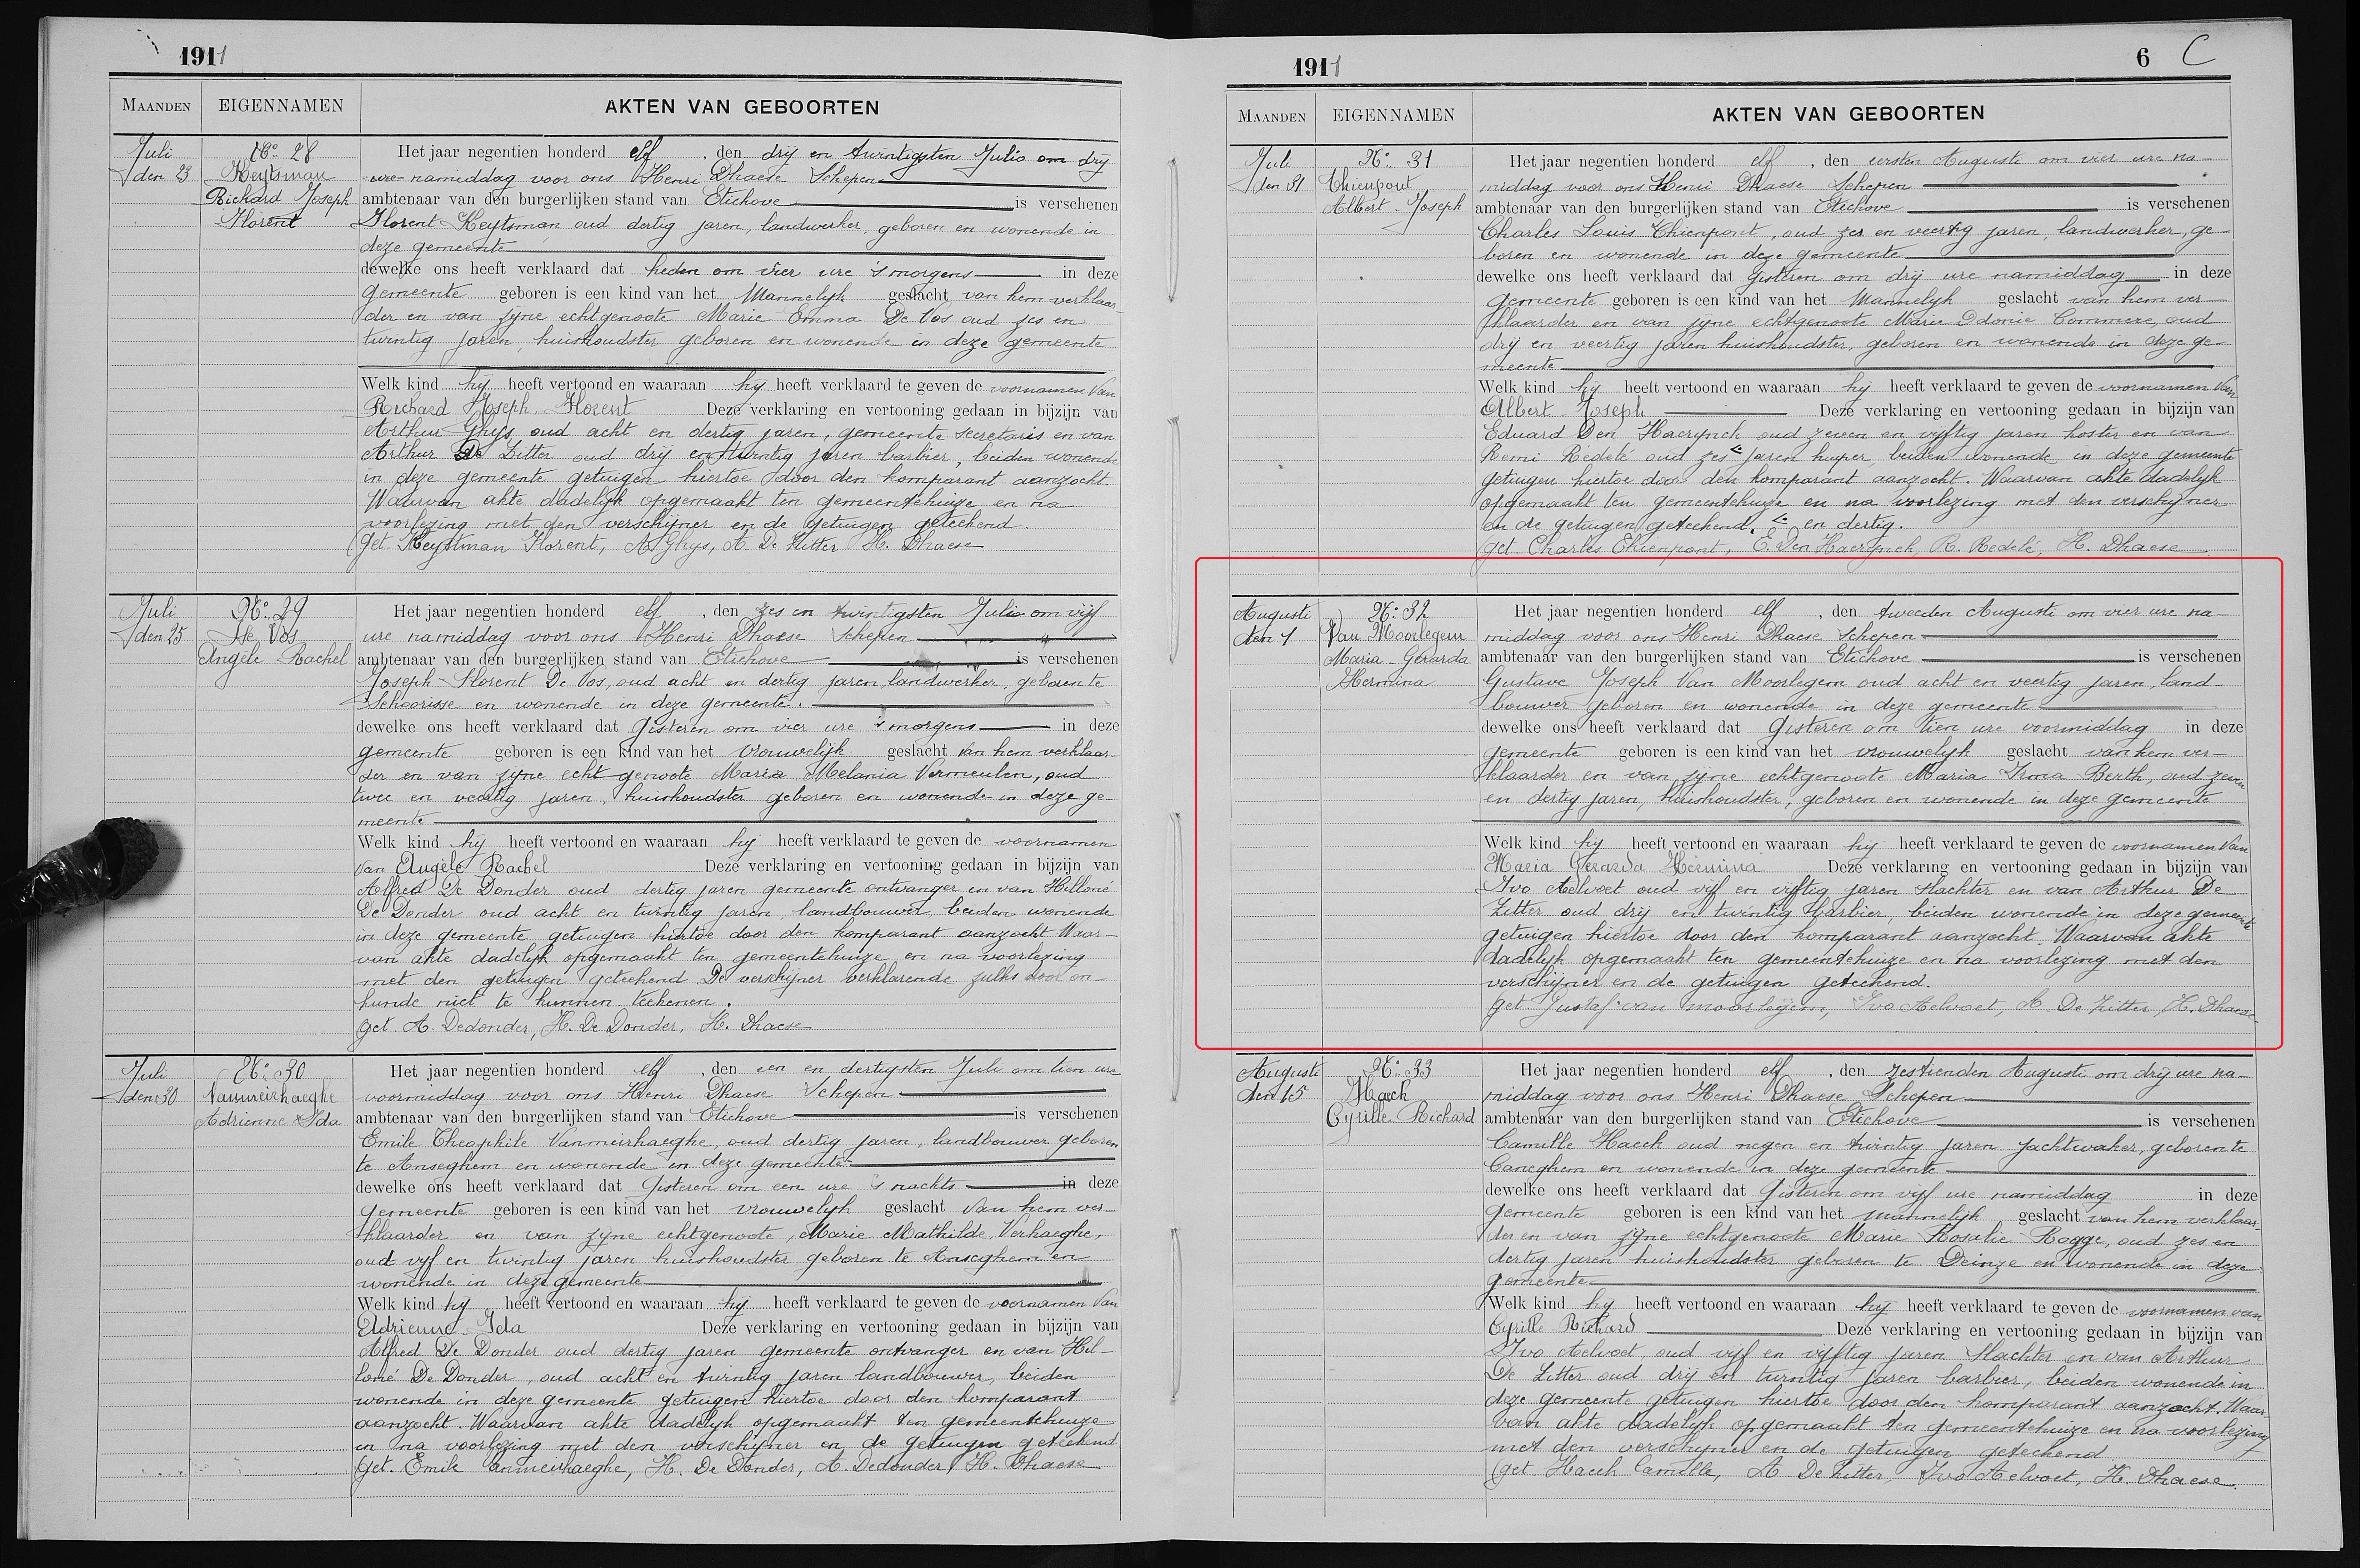 1911
MAANDEN
EIGENNAMEN
AKTEN VAN GEBOORTEN
Juli
den 23
No 28
Keytsman
Richard Joseph
Florent
Het jaar negentien honderd elf, den drij en twintigsten Julio om drij
ure namiddag voor ons Henri Dhaese Schepen
ambtenaar van den burgerlijken stand van Etichove is verschenen
Florent Keytsman oud dertig jaren, landwerker, geboren en wonende in
deze gemeente
dewelke ons heeft verklaard dat heden om vier ure 's morgens in deze
gemeente geboren is een kind van het Mannelijk geslacht van hem verklaar-
der en van zijne echtgenoote Marie Emma De Vos oud zes en
twintig jaren, huishoudster geboren en wonende in deze gemeente
Welk kind hij heeft vertoond en waaraan hij heeft verklaard te geven de voornamen van
Richard Joseph Florent Deze verklaring en vertooning gedaan in bijzijn van
Arthur Ghys, oud acht en dertig jaren, gemeente secretaris en van
Arthur De Zitter oud drij en twintig jaren barbier, beiden wonende
in deze gemeente getuigen hiertoe door den komparant aanzocht.
Waarvan akte dadelijk opgemaakt ten gemeentehuize en na
voorlezing met den verschijner en de getuigen geteekend.
Get. Keytsman Florent, A. Ghys, A. De Zitter H. Dhaese
Juli
den 25
No 29
De Vos
Angèle Rachel
Het jaar negentien honderd elf, den zes en twintigsten Julio om vijf
ure namiddag voor ons Henri Dhaese Schepen
ambtenaar van den burgerlijken stand van Etichove is verschenen
Joseph Florent De Vos, oud acht en dertig jaren, landwerker, geboren te
Schoorisse en wonende in deze gemeente.
dewelke ons heeft verklaard dat Gisteren om vier ure 's morgens in deze
gemeente geboren is een kind van het vrouwelijk geslacht van hem verklaar-
der en van zijne echtgenoote Maria Melania Vermeulen, oud
twee en veertig jaren, huishoudster geboren en wonende in deze ge-
meente
Welk kind hij heeft vertoond en waaraan hij heeft verklaard te geven de voornamen
van Angèle Rachel Deze verklaring en vertooning gedaan in bijzijn van
Alfred De Donder oud dertig jaren gemeente ontvanger en van Hilloné
De Donder oud acht en twintig jaren, landbouwer, beiden wonende
in deze gemeente getuigen hiertoe door den komparant aanzocht Waar-
van akte dadelijk opgemaakt ten gemeentehuize en na voorlezing
met den getuigen geteekend De verschijner verklarende zulks door on-
kunde niet te kunnen teekenen.
Get. A. Dedonder, H. De Donder, H. Dhaese
Juli
den 30
No 30
Vanmeirhaeghe
Adrienne Ida
Het jaar negentien honderd elf, den een en dertigsten Juli om tien ure
voormiddag voor ons Henri Dhaese Schepen
ambtenaar van den burgerlijken stand van Etichove is verschenen
Emile Theophile Vanmeirhaeghe, oud dertig jaren, landbouwer geboren
te Anseghem en wonende in deze gemeente
dewelke ons heeft verklaard dat Gisteren om een ure 's nachts in deze
gemeente geboren is een kind van het vrouwelijk geslacht van hem ver-
klaarder en van zijne echtgenoote, Marie Mathilde Verhaeghe,
oud vijf en twintig jaren huishoudster geboren te Anseghem en
wonende in deze gemeente
Welk kind hij heeft vertoond en waaraan hij heeft verklaard te geven de voornamen van
Adrienne Ida Deze verklaring en vertooning gedaan in bijzijn van
Alfred De Donder oud dertig jaren gemeente ontvanger en van Hil-
loné De Donder, oud acht en twintig jaren landbouwer, beiden
wonende in deze gemeente getuigen hiertoe door den komparant
aanzocht. Waarvan akte dadelijk opgemaakt ten gemeentehuize
en na voorlezing met den verschijner en de getuigen geteekend
Get. Emile Vanmeirhaeghe, H. De Donder, A. Dedonder, H. Dhaese
1911
6 C
MAANDEN
EIGENNAMEN
AKTEN VAN GEBOORTEN
Juli
den 31
No 31
Thienpont
Albert Joseph
Het jaar negentien honderd elf, den eersten Augusti om vier ure na-
middag voor ons Henri Dhaese Schepen
ambtenaar van den burgerlijken stand van Etichove is verschenen
Charles Louis Thienpont, oud zes en veertig jaren, landwerker, ge-
boren en wonende in deze gemeente
dewelke ons heeft verklaard dat Gisteren om drij ure namiddag in deze
gemeente geboren is een kind van het Mannelijk geslacht van hem ver-
klaarder en van zijne echtgenoote Marie Odonie Commere, oud
drij en veertig jaren huishoudster, geboren en wonende in deze ge-
meente
Welk kind hij heeft vertoond en waaraan hij heeft verklaard te geven de voornamen van
Albert Joseph Deze verklaring en vertooning gedaan in bijzijn van
Eduard Den Haerynck oud zeven en vijftig jaren koster en van
Remi Redelé oud zes jaren kuiper, beiden wonende in deze gemeente
getuigen hiertoe door den komparant aanzocht. Waarvan akte dadelijk
opgemaakt ten gemeentehuize en na voorlezing met den verschijner
en de getuigen geteekend. en dertig.
Get. Charles Thienpont, E. Den Haerynck, R. Redelé, H. Dhaese
Augusti
den 1
No 32
Van Moorlegem
Maria Gerarda
Hermina
Het jaar negentien honderd elf, den tweeden Augusti om vier ure na-
middag voor ons Henri Dhaese Schepen
ambtenaar van den burgerlijken stand van Etichove is verschenen
Gustave Joseph Van Moorlegem oud acht en veertig jaren, land-
bouwer geboren en wonende in deze gemeente
dewelke ons heeft verklaard dat Gisteren om tien ure voormiddag in deze
gemeente geboren is een kind van het vrouwelijk geslacht van hem ver-
klaarder en van zijne echtgenoote Maria Irma Berth, oud zeven
en dertig jaren, huishoudster, geboren en wonende in deze gemeente
Welk kind hij heeft vertoond en waaraan hij heeft verklaard te geven de voornamen van
Maria Gerarda Hermina Deze verklaring en vertooning gedaan in bijzijn van
Ivo Aelvoet oud vijf en vijftig jaren slachter en van Arthur De
Zitter oud drij en twintig barbier, beiden wonende in deze gemeente
getuigen hiertoe door den komparant aanzocht. Waarvan akte
dadelijk opgemaakt ten gemeentehuize en na voorlezing met den
verschijner en de getuigen geteekend.
Get. Gustaf van moorlegem, Ivo Aelvoet, A. De Zitter, H. Dhaese
Augusti
den 15
No 33
Haeck
Cyrille Richard
Het jaar negentien honderd elf, den zestienden Augusti om drij ure na-
middag voor ons Henri Dhaese Schepen
ambtenaar van den burgerlijken stand van Etichove is verschenen
Camille Haeck oud negen en twintig jaren jachtwaker, geboren te
Caneghem en wonende in deze gemeente
dewelke ons heeft verklaard dat Gisteren om vijf ure namiddag in deze
gemeente geboren is een kind van het mannelijk geslacht van hem verklaar-
der en van zijne echtgenoote Marie Rosalie Rogge, oud zes en
dertig jaren huishoudster geboren te Deinze en wonende in deze
gemeente
Welk kind hij heeft vertoond en waaraan hij heeft verklaard te geven de voornamen van
Cyrille Richard Deze verklaring en vertooning gedaan in bijzijn van
Ivo Aelvoet, oud vijf en vijftig jaren slachter en van Arthur
De Zitter oud drij en twintig jaren barbier, beiden wonende in
deze gemeente getuigen hiertoe door den komparant aanzocht. Waar-
van akte dadelijk opgemaakt ten gemeentehuize en na voorlezing
met den verschijner en de getuigen geteekend
Get. Haeck Camille, A. De Zitter, Ivo Aelvoet, H. Dhaese.